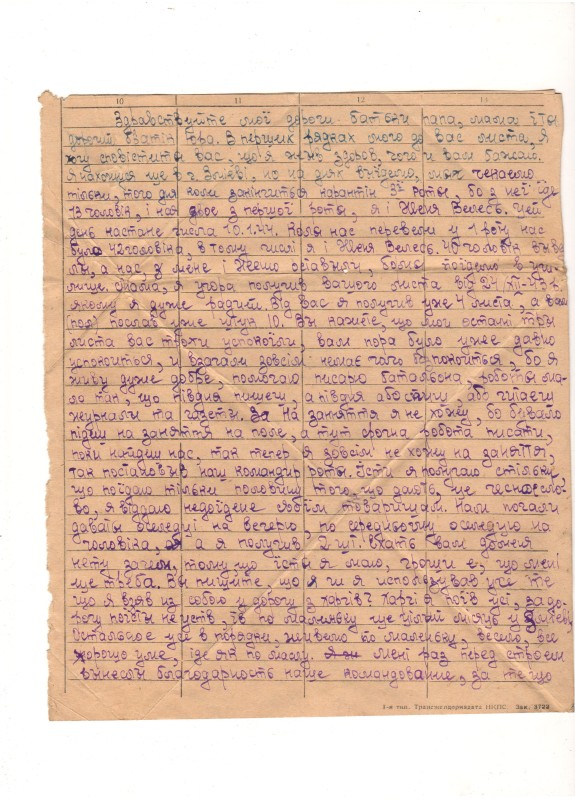 10 11 12 13
Здравствуйте мої дороги батьки папа, мама і ти
дорогий братік Юра. В перших рядках мого до вас листа, я
хочу сповістити вас, що я жив, здоров, чого и вам бажаю.
Я нахожуся ще в г. но на днях виїдемо, ми чекаємо
тільки, того дня коли закінчиться карантін 3ї роты, бо з неї їде
13 чоловік, і нас двое з першої роты, я і Женя Велесь. Цей
день настане числа 10.1.44. Коли нас перевели у 1 роту нас
було 42 человіка, в тому числі я і Женя Велесь. 40 чоловік
а нас, з мене і оставили, бо ми поїдемо в учи-
лище. Мама, я учора получив Вашого листа від 24.XII-43 р.
якому я дуже радий. Від вас я получив уже 4 листа, а вам
послав уже штук 10. Ви кажете, що мої остані три
листа вас трохи успокоїли, вам пора було уже давно
успокоиться, и взагалі зовсім немає чого безпокоиться, бо я
живу дуже добре, помогаю писарю батальйона, роботи ма-
ло так, що півдня пишеш, а півдня або спиш, або читаєш
журнали та газети. На заняття я не хожу, бо бувало
підеш на заняття на поле, а тут срочна робота писати,
поки найдеш нас, так тепер я зовсім не хожу на заняття,
так постановив наш командир роты. Їсти я получаю стільки,
що поїдаю тільки половину того, що дають, це чесное сло-
во, я віддаю недоїдене своїм товарищам. Нам почали
давати оселедці на вечерю, по середньому оселедцю на
чоловіка, а я получив 2 шт. Ехать вам до меня
нету зачем, тому що їсти я маю, гроши є, що мені
ще треба. Ви пишите, що я чи я использував усе те
що я взяв из собою у дорогу з харчів? Харчі я поїв усі, за до-
рогу поїсти не устів, їв по маленьку ще цілий місяць у
Остальное усе в порядку. Живемо по маленьку, весело, все
хорошо уже, іде як по маслу. Мені раз перед строем
вынесли благодарность наше командование, за те що
1-я тип. Трансжелдориздата НКПС. Зак. 3722